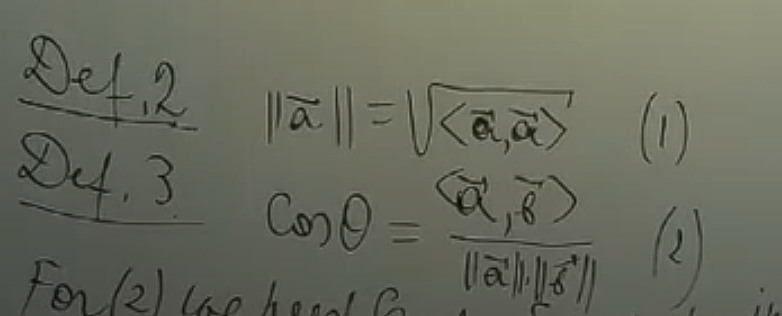 Def. 2 ||a⃗|| = √<a⃗, a⃗> (1)
Def. 3 Cos θ = <a⃗, b⃗> / ||a⃗||·||b⃗|| (2)
For (2) we need